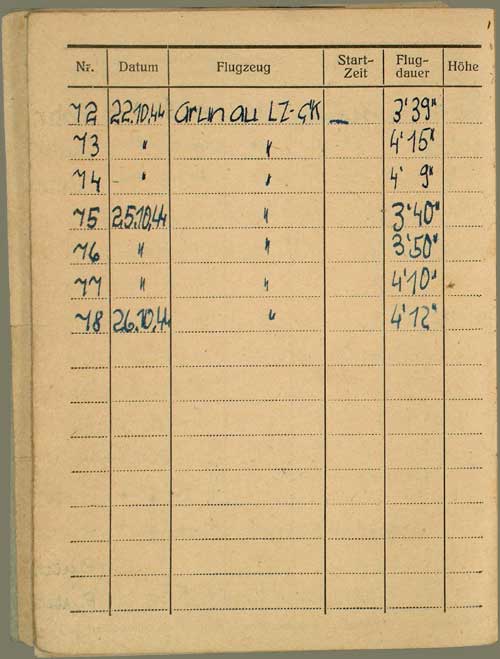 Nr. Datum Flugzeug Start-Zeit Flug-dauer Höhe
72 22.10.44 Grunau LZ-GK — 3'39"
73 " " 4'15"
74 " " 4' 9"
75 25.10.44 " 3'40"
76 " " 3'50"
77 " " 4'10"
78 26.10.44 " 4'12"